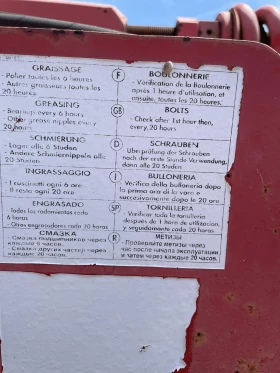 GRAISSAGE
- Palier toutes les 6 heures
- Autres graisseurs toutes les
20 heures
F
BOULONNERIE
- Vérification de la Boulonnerie
après 1 heure d'utilisation, et
ensuite, toutes les 20 heures.
GREASING
- Bearings every 6 hours
- Other grease nipples every
20 hours
GB
BOLTS
- Check after 1st hour then,
every 20 hours
SCHMIERUNG
- Lager alle 6 Studen
- Andere Schmiernippels alle
20 Studen
D
SCHRAUBEN
- Überprüfung der Schrauben
nach der erste Stunde Verwendung,
dann alle 20 Studen
INGRASSAGGIO
- I cuscinetti ogni 6 ore
- Il resto ogni 20 ore
I
BULLONERIA
- Verifica della bulloneria dopo
la prima ora di lavoro e
successivamente dopo le 20 ore
ENGRASADO
- Todos los rodamientos cada
6 horas
- Otros engrasadores cada 20 horas
SP
TORNILLERIA
- Verificar toda la tornilleria
despues de 1 hora de utilizacion,
y seguidamente cada 20 horas.
СМАЗКА
- Смазка подшипников через
каждые 6 часов
- Смазка других частей через
каждые 20 часов.
R
МЕТИЗЫ
- Проверяйте метизы через
час начала эксплуатации
и затем через каждые 20 часов.